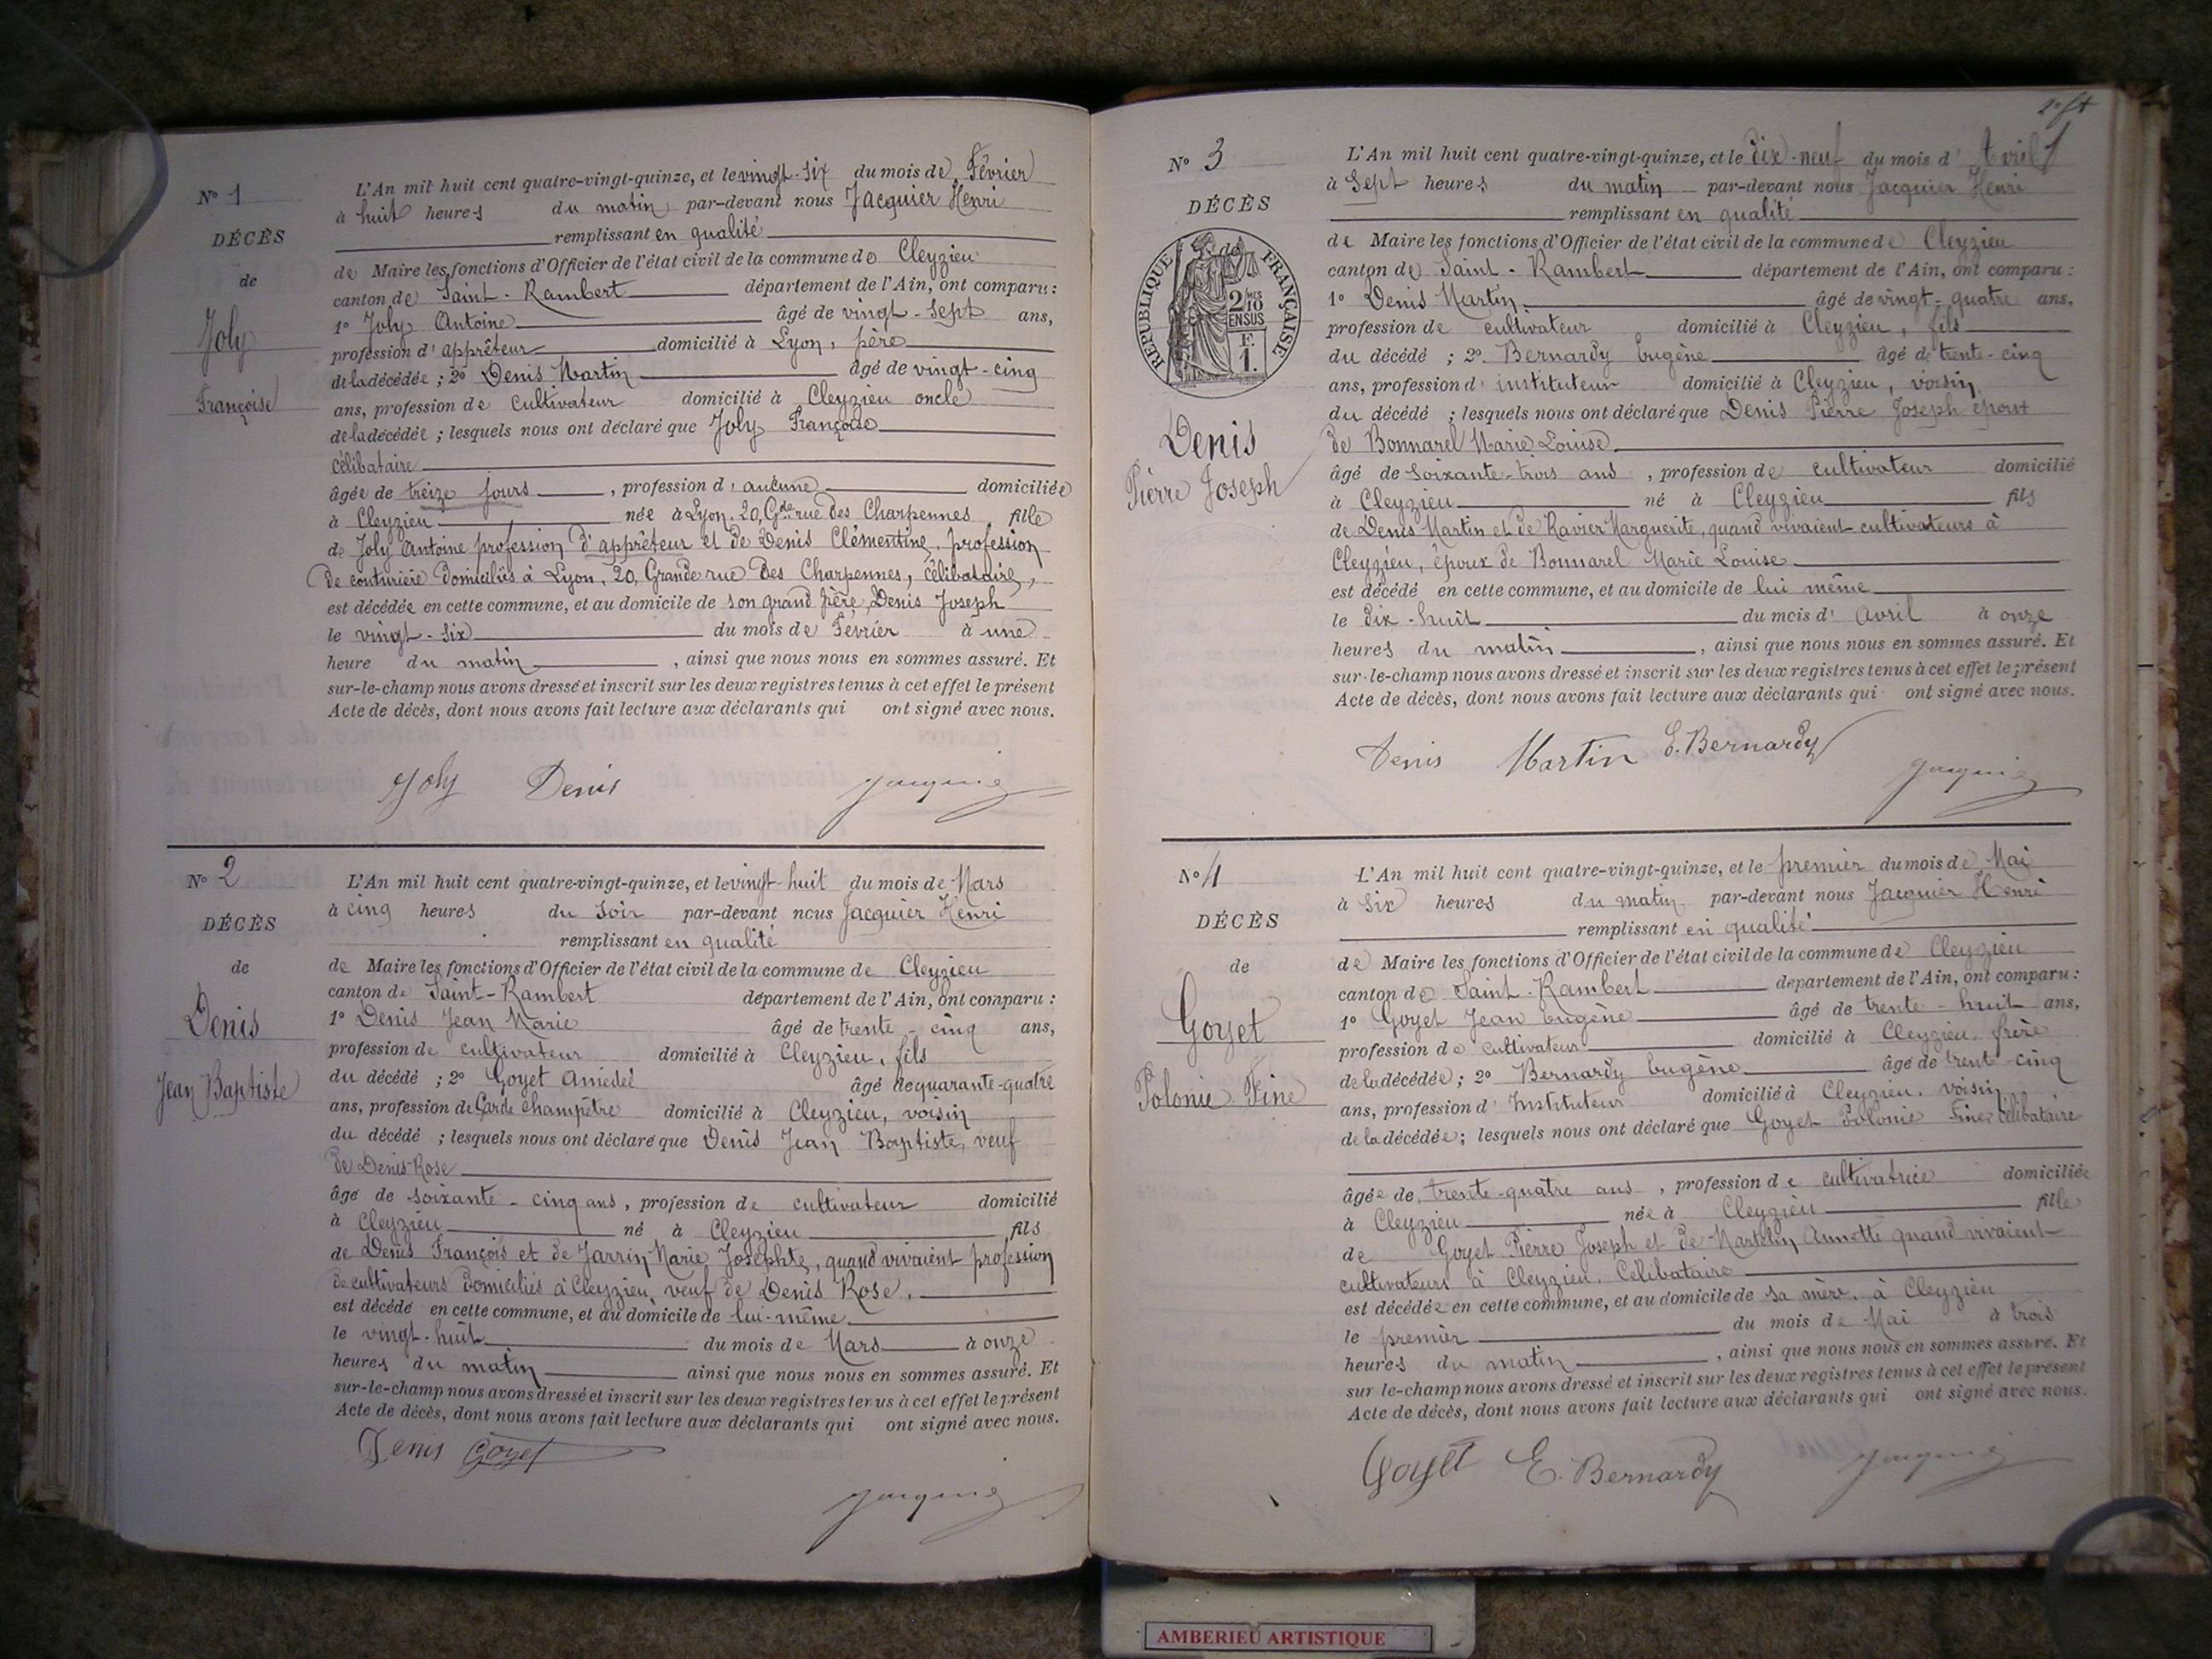 N° 1
DÉCÈS
de
Joly
Françoise
L'An mil huit cent quatre-vingt-quinze, et le vingt-six du mois de Février
à huit heures du matin par-devant nous Jacquier Henri
remplissant en qualité
de Maire les fonctions d'Officier de l'état civil de la commune de Cleyzieu
canton de Saint-Rambert département de l'Ain, ont comparu :
1° Joly Antoine âgé de vingt-sept ans,
profession d'apprêteur domicilié à Lyon, père
de la décédée ; 2° Denis Martin âgé de vingt-cinq
ans, profession de cultivateur domicilié à Cleyzieu oncle
de la décédée ; lesquels nous ont déclaré que Joly Françoise
célibataire
âgée de treize jours, profession d'aucune domiciliée
à Cleyzieu née à Lyon, 20, Gde rue des Charpennes fille
de Joly Antoine profession d'apprêteur et de Denis Clémentine, profession
de couturière domiciliés à Lyon, 20, Grande rue des Charpennes, célibataire,
est décédée en cette commune, et au domicile de son grand père, Denis Joseph
le vingt-six du mois de Février à une
heure du matin, ainsi que nous nous en sommes assuré. Et
sur-le-champ nous avons dressé et inscrit sur les deux registres tenus à cet effet le présent
Acte de décès, dont nous avons fait lecture aux déclarants qui ont signé avec nous.
Joly Denis Jacquier
N° 2
DÉCÈS
de
Denis
Jean Baptiste
L'An mil huit cent quatre-vingt-quinze, et le vingt-huit du mois de Mars
à cinq heures du soir par-devant nous Jacquier Henri
remplissant en qualité
de Maire les fonctions d'Officier de l'état civil de la commune de Cleyzieu
canton de Saint-Rambert département de l'Ain, ont comparu :
1° Denis Jean Marie âgé de trente-cinq ans,
profession de cultivateur domicilié à Cleyzieu, fils
du décédé ; 2° Goyet Amédeé âgé de quarante-quatre
ans, profession de Garde champêtre domicilié à Cleyzieu, voisin
du décédé ; lesquels nous ont déclaré que Denis Jean Baptiste, veuf
de Denis Rose
âgé de soixante-cinq ans, profession de cultivateur domicilié
à Cleyzieu né à Cleyzieu fils
de Denis François et de Jarrin Marie Josephte, quand vivaient profession
de cultivateurs domiciliés à Cleyzieu, veuf de Denis Rose,
est décédé en cette commune, et au domicile de lui-même
le vingt-huit du mois de Mars à onze
heures du matin ainsi que nous nous en sommes assuré. Et
sur-le-champ nous avons dressé et inscrit sur les deux registres tenus à cet effet le présent
Acte de décès, dont nous avons fait lecture aux déclarants qui ont signé avec nous.
Denis Goyet
Jacquier
N° 3
DÉCÈS
de
RÉPUBLIQUE FRANÇAISE
2/10 MES
EN SUS
F.
1.
Denis
Pierre Joseph
L'An mil huit cent quatre-vingt-quinze, et le dix-neuf du mois d'Avril
à sept heures du matin par-devant nous Jacquier Henri
remplissant en qualité
de Maire les fonctions d'Officier de l'état civil de la commune de Cleyzieu
canton de Saint-Rambert département de l'Ain, ont comparu :
1° Denis Martin âgé de vingt-quatre ans,
profession de cultivateur domicilié à Cleyzieu, fils
du décédé ; 2° Bernardy Eugène âgé de trente-cinq
ans, profession d'instituteur domicilié à Cleyzieu, voisin
du décédé ; lesquels nous ont déclaré que Denis Pierre Joseph époux
de Bonnarel Marie Louise
âgé de soixante-trois ans, profession de cultivateur domicilié
à Cleyzieu né à Cleyzieu fils
de Denis Martin et de Ravier Marguerite, quand vivaient cultivateurs à
Cleyzieu, époux de Bonnarel Marie Louise
est décédé en cette commune, et au domicile de lui même
le dix-huit du mois d'Avril à onze
heures du matin, ainsi que nous nous en sommes assuré. Et
sur-le-champ nous avons dressé et inscrit sur les deux registres tenus à cet effet le présent
Acte de décès, dont nous avons fait lecture aux déclarants qui ont signé avec nous.
Denis Martin E. Bernardy
Jacquier
N° 4
DÉCÈS
de
Goyet
Polonie Fine
L'An mil huit cent quatre-vingt-quinze, et le premier du mois de Mai
à six heures du matin par-devant nous Jacquier Henri
remplissant en qualité
de Maire les fonctions d'Officier de l'état civil de la commune de Cleyzieu
canton de Saint-Rambert département de l'Ain, ont comparu :
1° Goyet Jean Eugène âgé de trente-huit ans,
profession de cultivateur domicilié à Cleyzieu, frère
de la décédée ; 2° Bernardy Eugène âgé de trent-cinq
ans, profession d'Instituteur domicilié à Cleyzieu, voisin
de la décédée ; lesquels nous ont déclaré que Goyet Polonie Fine, célibataire
âgée de trente-quatre ans, profession de cultivatrice domiciliée
à Cleyzieu née à Cleyzieu fille
de Goyet Pierre Joseph et de Martelin Annette quand vivaient
cultivateurs à Cleyzieu. Célibataire
est décédée en cette commune, et au domicile de sa mère, à Cleyzieu
le premier du mois de Mai à trois
heures du matin, ainsi que nous nous en sommes assuré. Et
sur le-champ nous avons dressé et inscrit sur les deux registres tenus à cet effet le présent
Acte de décès, dont nous avons fait lecture aux déclarants qui ont signé avec nous.
Goyet E. Bernardy Jacquier
AMBERIEU ARTISTIQUE